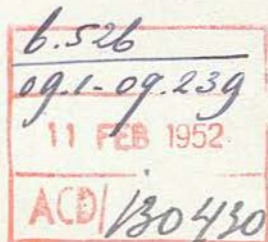 6.526
09.1-09.239
11 FEB 1952
ACD/130430